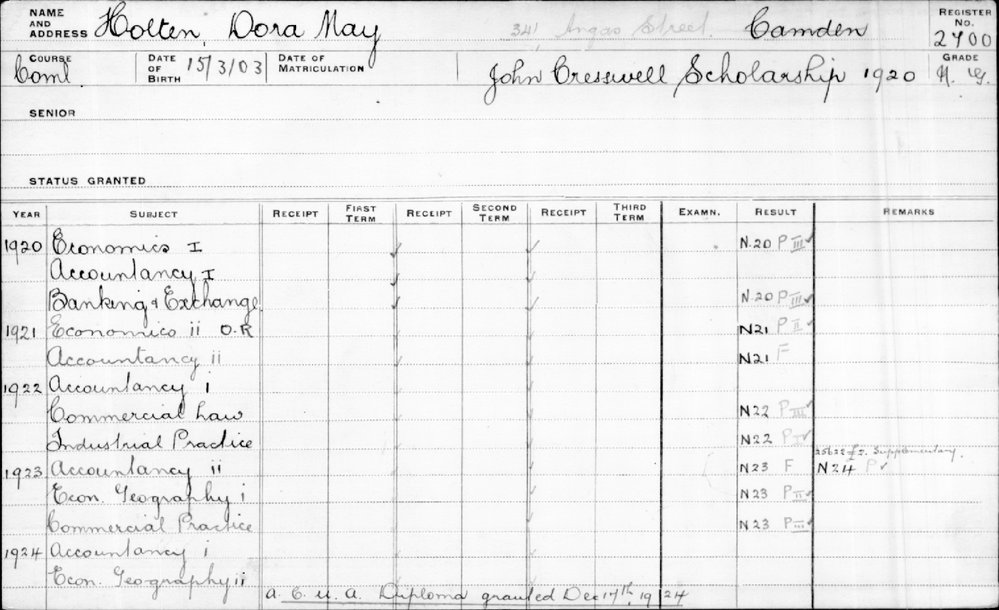 NAME AND ADDRESS Holten, Dora May 341 Angas Street. Camden REGISTER No. 2700
COURSE Coml DATE OF BIRTH 15/3/03 DATE OF MATRICULATION John Cresswell Scholarship 1920 GRADE N. G.
SENIOR
STATUS GRANTED
YEAR SUBJECT RECEIPT FIRST TERM RECEIPT SECOND TERM RECEIPT THIRD TERM EXAMN. RESULT REMARKS
1920 Economics I ✓ ✓ N.20 P III ✓
Accountancy I ✓ ✓
Banking & Exchange ✓ ✓ N.20 P III ✓
1921 Economics ii O.R ✓ ✓ N21 P II ✓
Accountancy ii ✓ ✓ N21 F
1922 Accountancy i ✓ ✓
Commercial Law ✓ ✓ N22 P III ✓
Industrial Practice ✓ ✓ N22 P ✓
Supplementary.
1923 Accountancy ii ✓ ✓ N23 F N24 P ✓
Econ. Geography i ✓ ✓ N23 P II ✓
Commercial Practice ✓ N23 P III ✓
1924 Accountancy i ✓ ✓
Econ. Geography ii ✓ ✓
A. C. U. A. Diploma granted Dec 17th, 1924